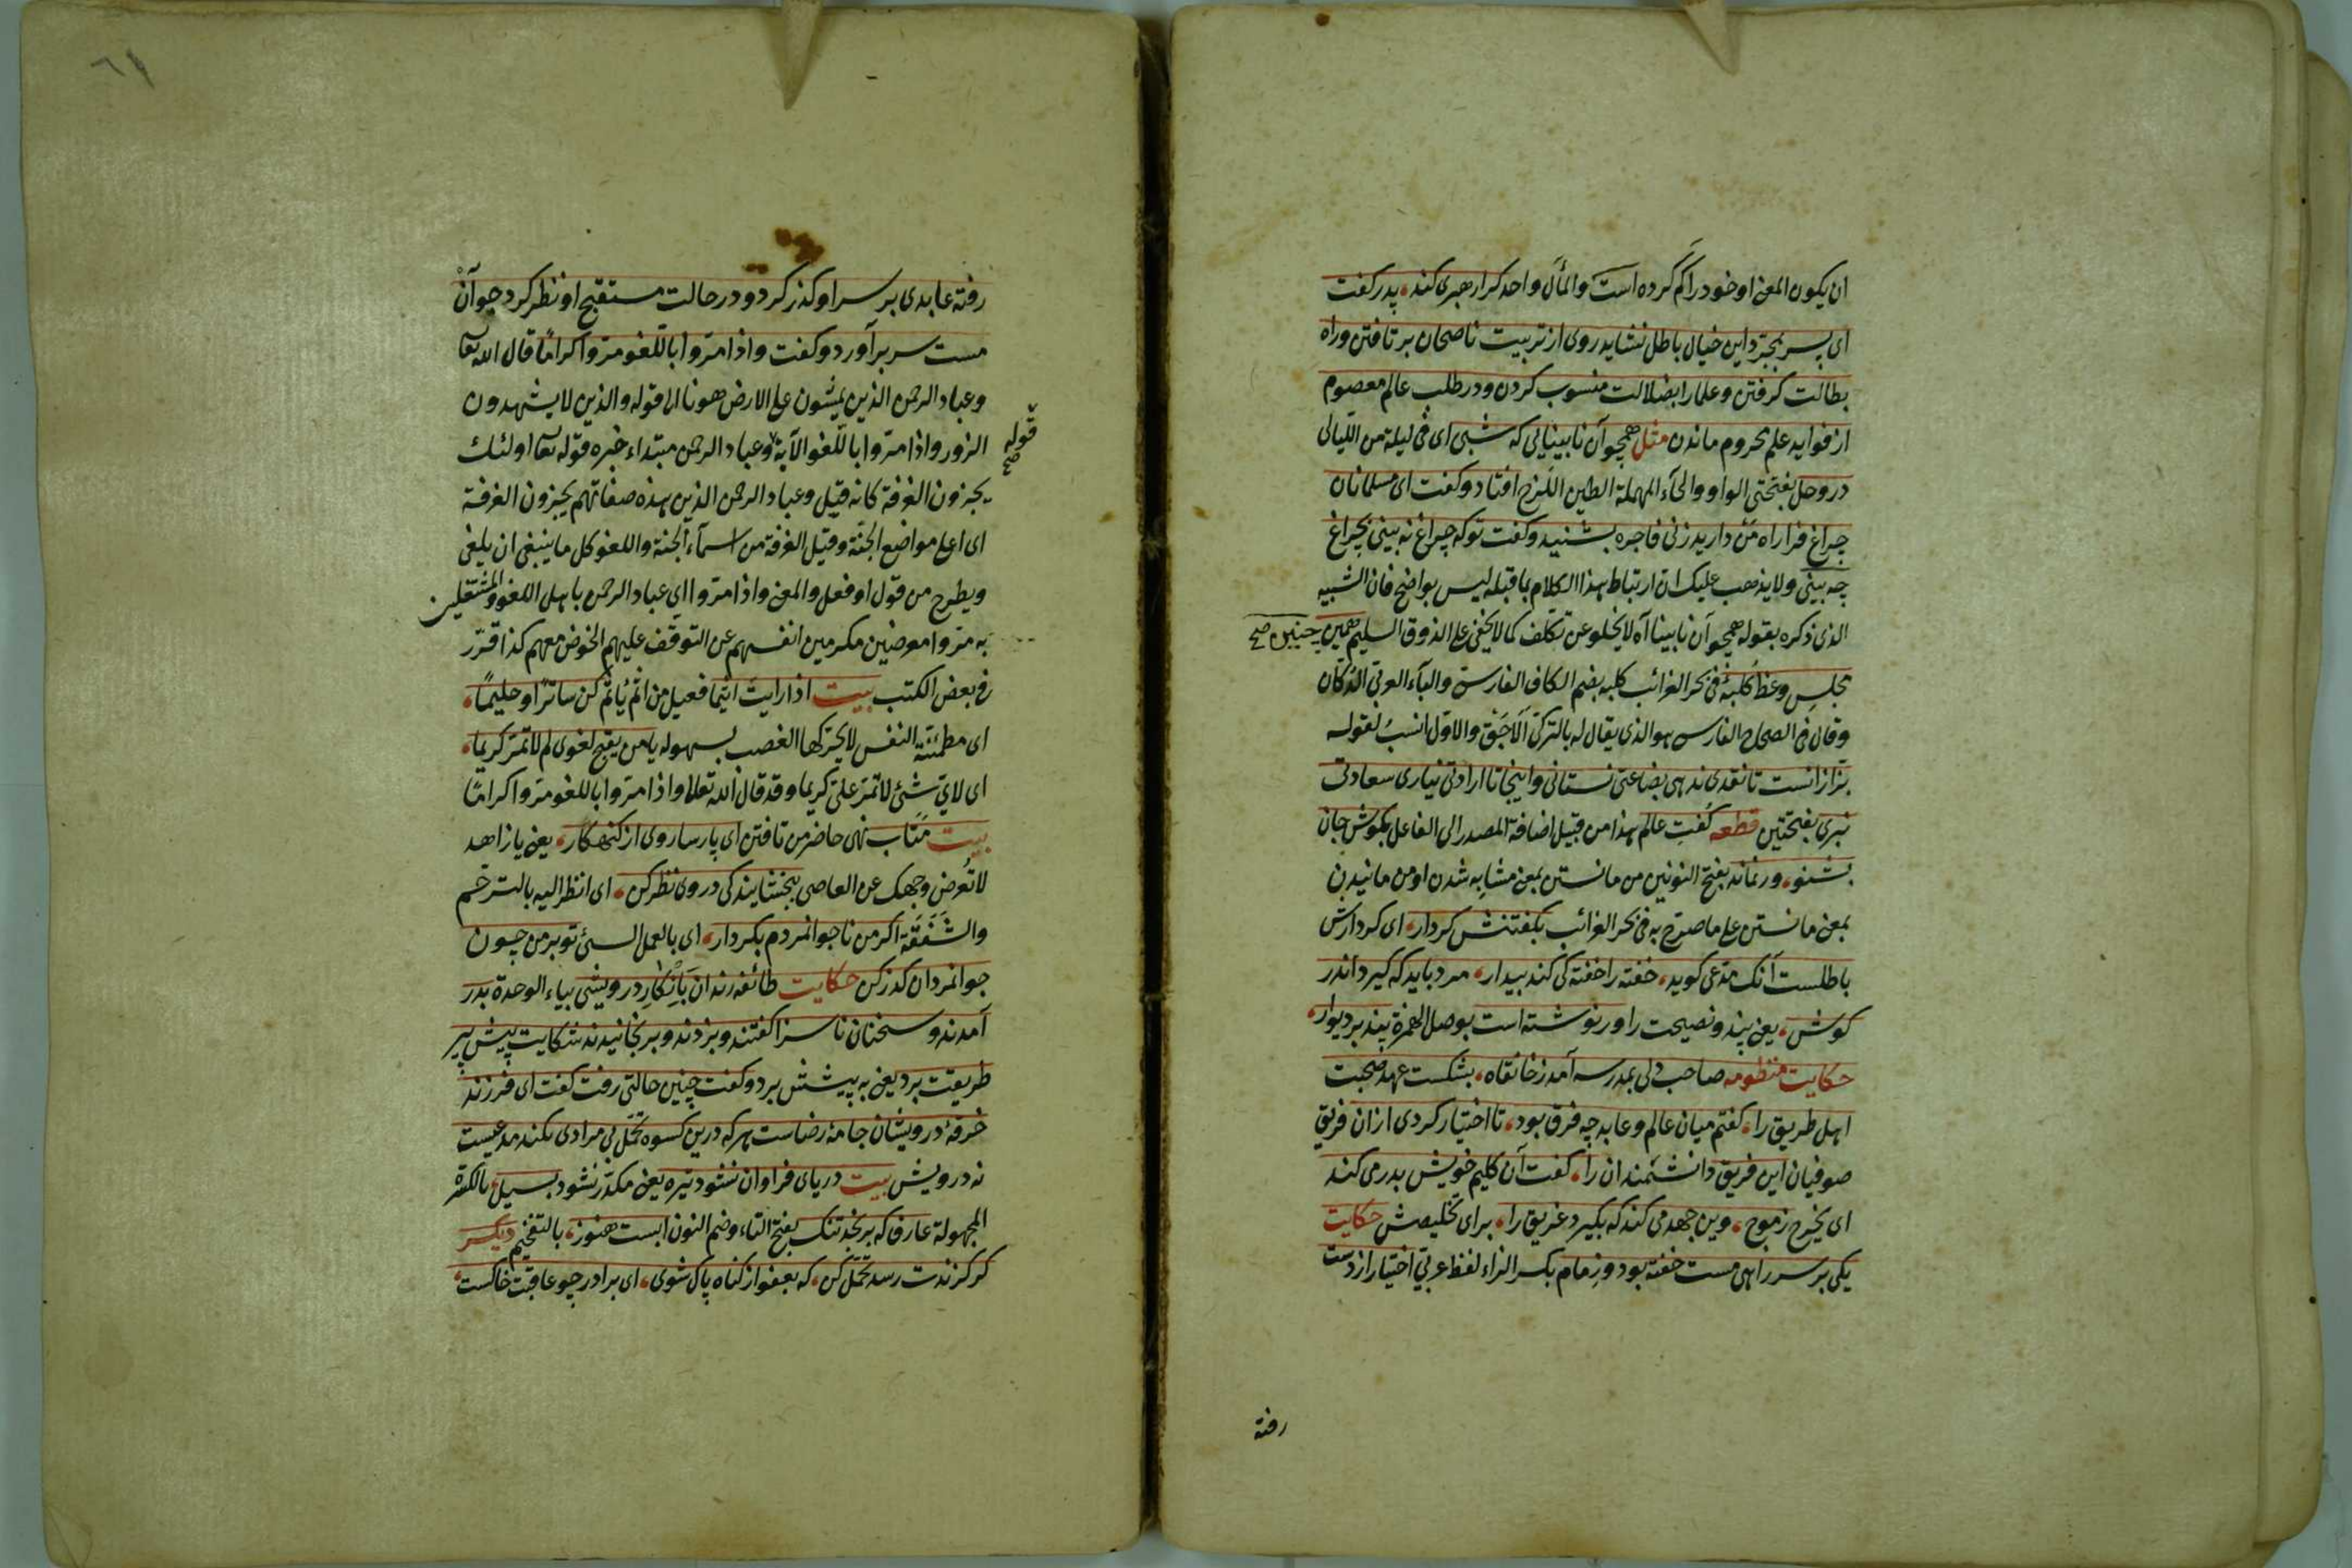 ان یکون المعنی او خود را کم کرده است والمآل واحد کرا رهبری کند پدر کفت
ای پسر بمجرد این خیال باطل نشاید روی از تربیت ناصحان برتافتن وراه
بطالت کرفتن وعلمارا بضلالت منسوب کردن ودر طلب عالم معصوم
از فواید علم محروم ماندن مثل همچو آن نابینایی که شبی ای فی لیلة من اللیالی
در وحل بفتحتی الواو والحآء المهملة الطین اللزج افتاد وکفت ای مسلمانان
چراغ فرا راه من دارید زنی فاجره بشنید وکفت تو که چراغ نه بینی بچراغ
چه بینی ولا یذهب علیک ان ارتباط هذا الکلام بما قبله لیس بواضح فان الشبیه
الذی ذکره بقوله همچو آن نابینا آه لا یخلو عن تکلف کما لا یخفی علی الذوق السلیم همین
چنین صح
مجلس وعظ کلبۀ فی بحر الغرائب کلبه بضم الکاف الفارسی والبآء العربی الدکان
وقال فی الصحاح الفارسی هو الذی یقال له بالترکی آلاجق والاول انسب لقوله
بزازانست تا نقدی ندهی بضاعتی نستانی واینجا تا ارادتی نیاری سعادتی
نبری بفتحتین قطعه کفت عالم هذا من قبیل اضافة المصدر الی الفاعل بکوش جان
بشنو ور نماند بفتح النونین من مانستن بمعنی مشابه شدن او من مانیدن
بمعنی مانستن علی ما صرح به فی بحر الغرائب بکفتنش کردار ای کردارش
باطلست آنک مدعی کوید خفته را خفته کی کند بیدار مرد باید که کیرد اندر
کوش یعنی پند ونصیحت را ور نوشته است بوصل الهمزة پند بر دیوار
حکایت منظومه صاحب دلی بمدرسه آمد ز خانقاه بشکست عهد صحبت
اهل طریق را کفتم میان عالم وعابد چه فرق بود تا اختیار کردی ازان فریق
صوفیان این فریق دانشمندان را کفت آن کلیم خویش بدر می کند
ای یخرج ز موج وین جهد می کند که بکیرد غریق را برای تخلیصش حکایت
یکی بر سر راهی مست خفته بود وزمام بکسر الزاء لفظ عربی اختیار از دست
رفته
٦١
رفته عابدی بر سر او کذر کرد ودر حالت مستقبح او نظر کرد جوان
مست سر برآورد وکفت واذا مروا باللغو مروا کراما قال الله تعا
وعباد الرحمن الذین یمشون علی الارض هونا الی قوله والذین لا یشهدون
الزور واذا مروا باللغو الآیة وعباد الرحمن مبتداء خبره قوله تعا اولئک
قوله صح
یجزون الغرفة کانه قیل وعباد الرحمن الذین هذه صفاتهم یجزون الغرفة
ای اعلی مواضع الجنة وقیل الغرفة من اسمآء الجنة واللغو کل ما ینبغی ان یلغی
ویطرح من قول او فعل والمعنی واذا مروا ای عباد الرحمن باهل اللغو والمشتغلین
به مروا معرضین مکرمین انفسهم عن التوقف علیهم الخوض معهم کذا قرر
فی بعض الکتب بیت اذا رایت اثیما فعیل من اثم یاثم کن ساترا وحلیما
ای مطمئنة النفس لا یحرکها الغضب بسهوله یا من یقبح لغوی لم لا تمر کریما
ای لای شئ لا تمر علی کریما وقد قال الله تعالی واذا مروا باللغو مروا کراما
بیت متاب نهی حاضر من تافتن ای پارسا روی از کنهکار یعنی یا زاهد
لا تعرض وجهک عن العاصی ببخشایندکی در وی نظر کن ای انظر الیه بالترحم
والشفقة اکر من ناجوانمردم بکردار ای بالعمل السئ تو بر من چون
جوانمردان کذر کن حکایت طائفه رندان بانکار درویشی بیاء الوحدة بدر
آمدند وسخنان ناسزا کفتند وبزدند وبرنجانیدند شکایت پیش پیر
طریقت برد یعنی به پیشش برد وکفت چنین حالتی رفت کفت ای فرزند
خرقۀ درویشان جامۀ رضاست هرکه درین کسوه تحمل بی مرادی نکند مدعیست
نه درویش بیت دریای فراوان نشود تیره یعنی مکدر نشود بسیل بالکسرة
المجهولة عارف که برنجد تنک بفتح التاء وضم النون ابست هنوز بالتفخیم دیکر
کر کزندت رسد تحمل کن که بعفو از کناه پاک شوی ای برادر چو عاقبت خاکست